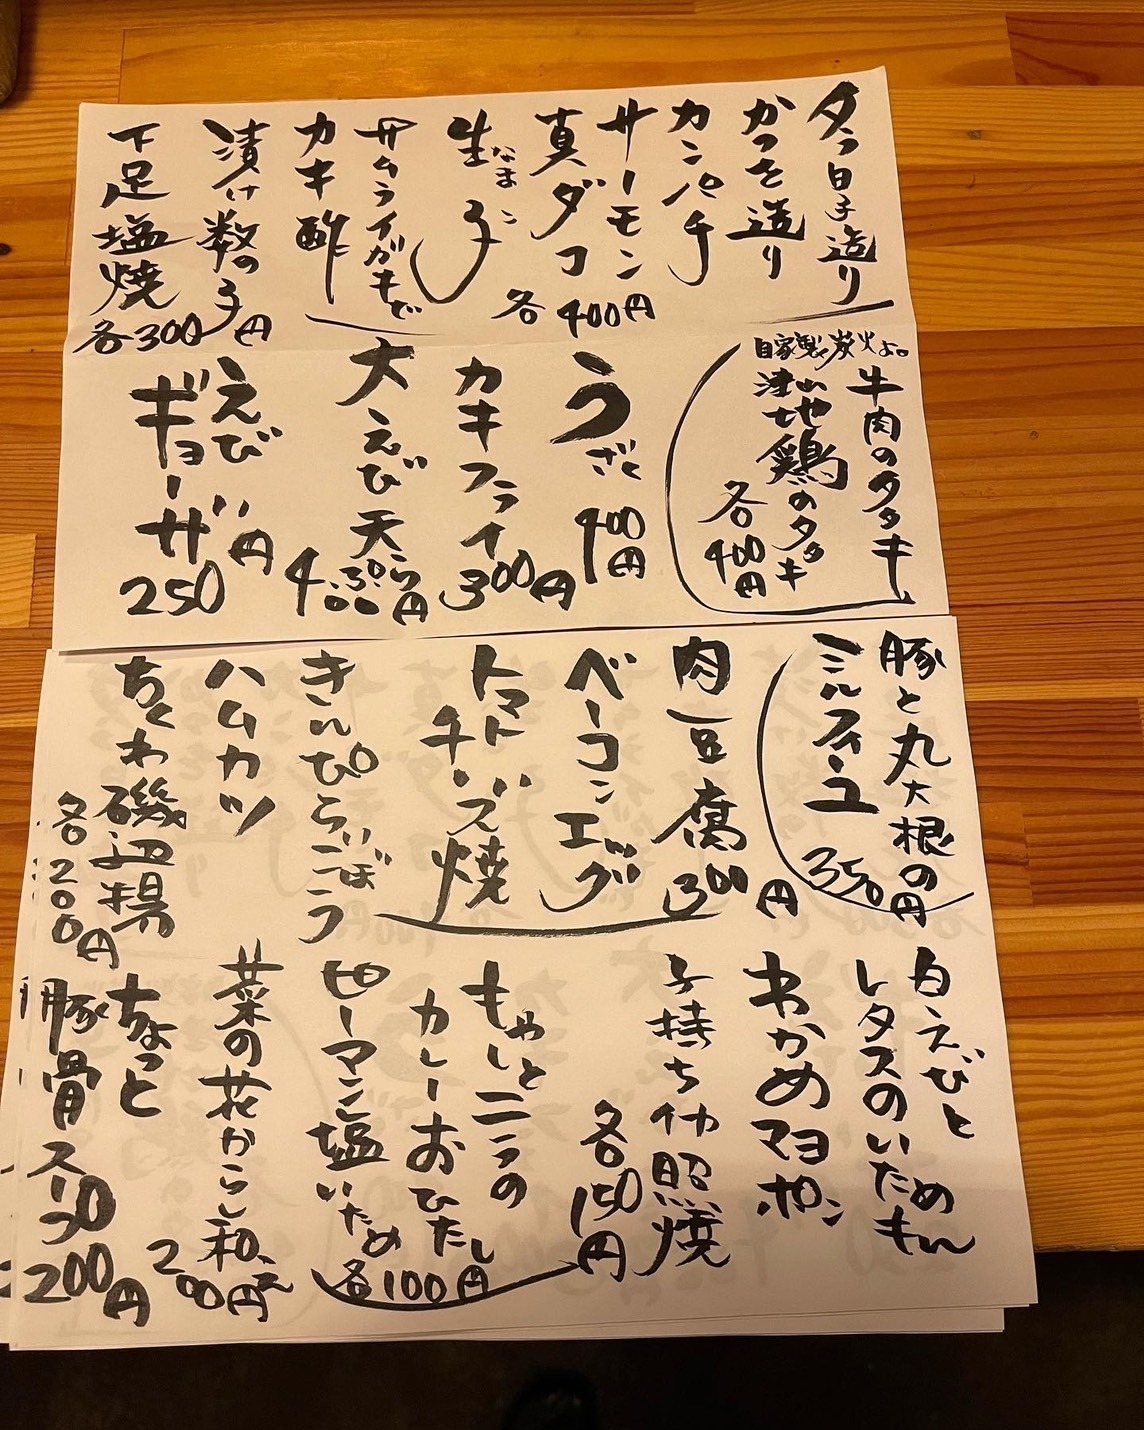 造り
かつを造り
カンパチ
サーモン
真ダコ
各400円
生なまこ
サムライガキ
カキ酢
漬け数の子
下足塩焼
各300円
自家製炭火
牛肉のタタキ
地鶏のタタキ
各400円
うざく
400円
カキフライ
300円
大えび天ぷら
えび
ギョーザ
250円
豚と丸大根の
ミルフィーユ
350円
肉豆腐
300円
ベーコンエッグ
トマト
チーズ焼
きんぴらごぼう
ハムカツ
ちくわ磯辺揚
各200円
白えびと
レタスのいため
わかめマヨポン
子持ちイカ照焼
各150円
もやしとニラの
カレーおひたし
ピーマン塩いため
各100円
菜の花からし和え
200円
ちょっと
豚骨スープ
200円